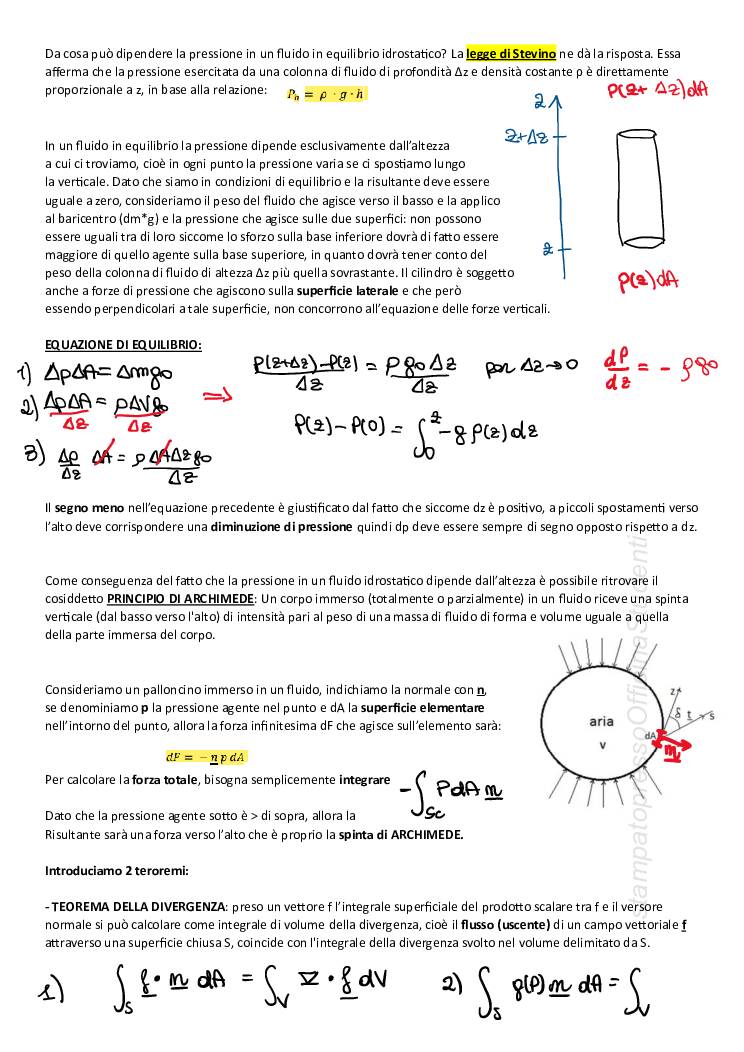 Da cosa può dipendere la pressione in un fluido in equilibrio idrostatico? La legge di Stevino ne dà la risposta. Essa
afferma che la pressione esercitata da una colonna di fluido di profondità Δz e densità costante ρ è direttamente
proporzionale a z, in base alla relazione: P_h = ρ · g · h
P(z+ Δz)dA
z
z+Δz
In un fluido in equilibrio la pressione dipende esclusivamente dall'altezza
a cui ci troviamo, cioè in ogni punto la pressione varia se ci spostiamo lungo
la verticale. Dato che siamo in condizioni di equilibrio e la risultante deve essere
uguale a zero, consideriamo il peso del fluido che agisce verso il basso e la applico
al baricentro (dm*g) e la pressione che agisce sulle due superfici: non possono
essere uguali tra di loro siccome lo sforzo sulla base inferiore dovrà di fatto essere
maggiore di quello agente sulla base superiore, in quanto dovrà tener conto del
z
peso della colonna di fluido di altezza Δz più quella sovrastante. Il cilindro è soggetto
anche a forze di pressione che agiscono sulla superficie laterale e che però
P(z)dA
essendo perpendicolari a tale superficie, non concorrono all'equazione delle forze verticali.
EQUAZIONE DI EQUILIBRIO:
1) ΔpΔA = Δmg₀
2) ΔpΔA/Δz = ρΔVg₀/Δz
3) Δp/Δz ΔA = ρΔAΔzg₀/Δz
⇒
P(z+Δz)-P(z)/Δz = ρg₀Δz/Δz per Δz→0 dP/dz = - ρg₀
P(z) - P(0) = ∫₀ᶻ -g ρ(z) dz
Il segno meno nell'equazione precedente è giustificato dal fatto che siccome dz è positivo, a piccoli spostamenti verso
l'alto deve corrispondere una diminuzione di pressione quindi dp deve essere sempre di segno opposto rispetto a dz.
Come conseguenza del fatto che la pressione in un fluido idrostatico dipende dall'altezza è possibile ritrovare il
cosiddetto PRINCIPIO DI ARCHIMEDE: Un corpo immerso (totalmente o parzialmente) in un fluido riceve una spinta
verticale (dal basso verso l'alto) di intensità pari al peso di una massa di fluido di forma e volume uguale a quella
della parte immersa del corpo.
Consideriamo un palloncino immerso in un fluido, indichiamo la normale con n,
se denominiamo p la pressione agente nel punto e dA la superficie elementare
nell'intorno del punto, allora la forza infinitesima dF che agisce sull'elemento sarà:
dF = − n p dA
aria
v
z
δ t s
dA
n
Per calcolare la forza totale, bisogna semplicemente integrare
-∫_Sc P dA n
Dato che la pressione agente sotto è > di sopra, allora la
Risultante sarà una forza verso l'alto che è proprio la spinta di ARCHIMEDE.
Introduciamo 2 teroremi:
- TEOREMA DELLA DIVERGENZA: preso un vettore f l'integrale superficiale del prodotto scalare tra f e il versore
normale si può calcolare come integrale di volume della divergenza, cioè il flusso (uscente) di un campo vettoriale f
attraverso una superficie chiusa S, coincide con l'integrale della divergenza svolto nel volume delimitato da S.
1) ∫_S f · n dA = ∫_V ∇ · f dV 2) ∫_S g(P) n dA = ∫_V
stampatopressoOfficinaStudenti